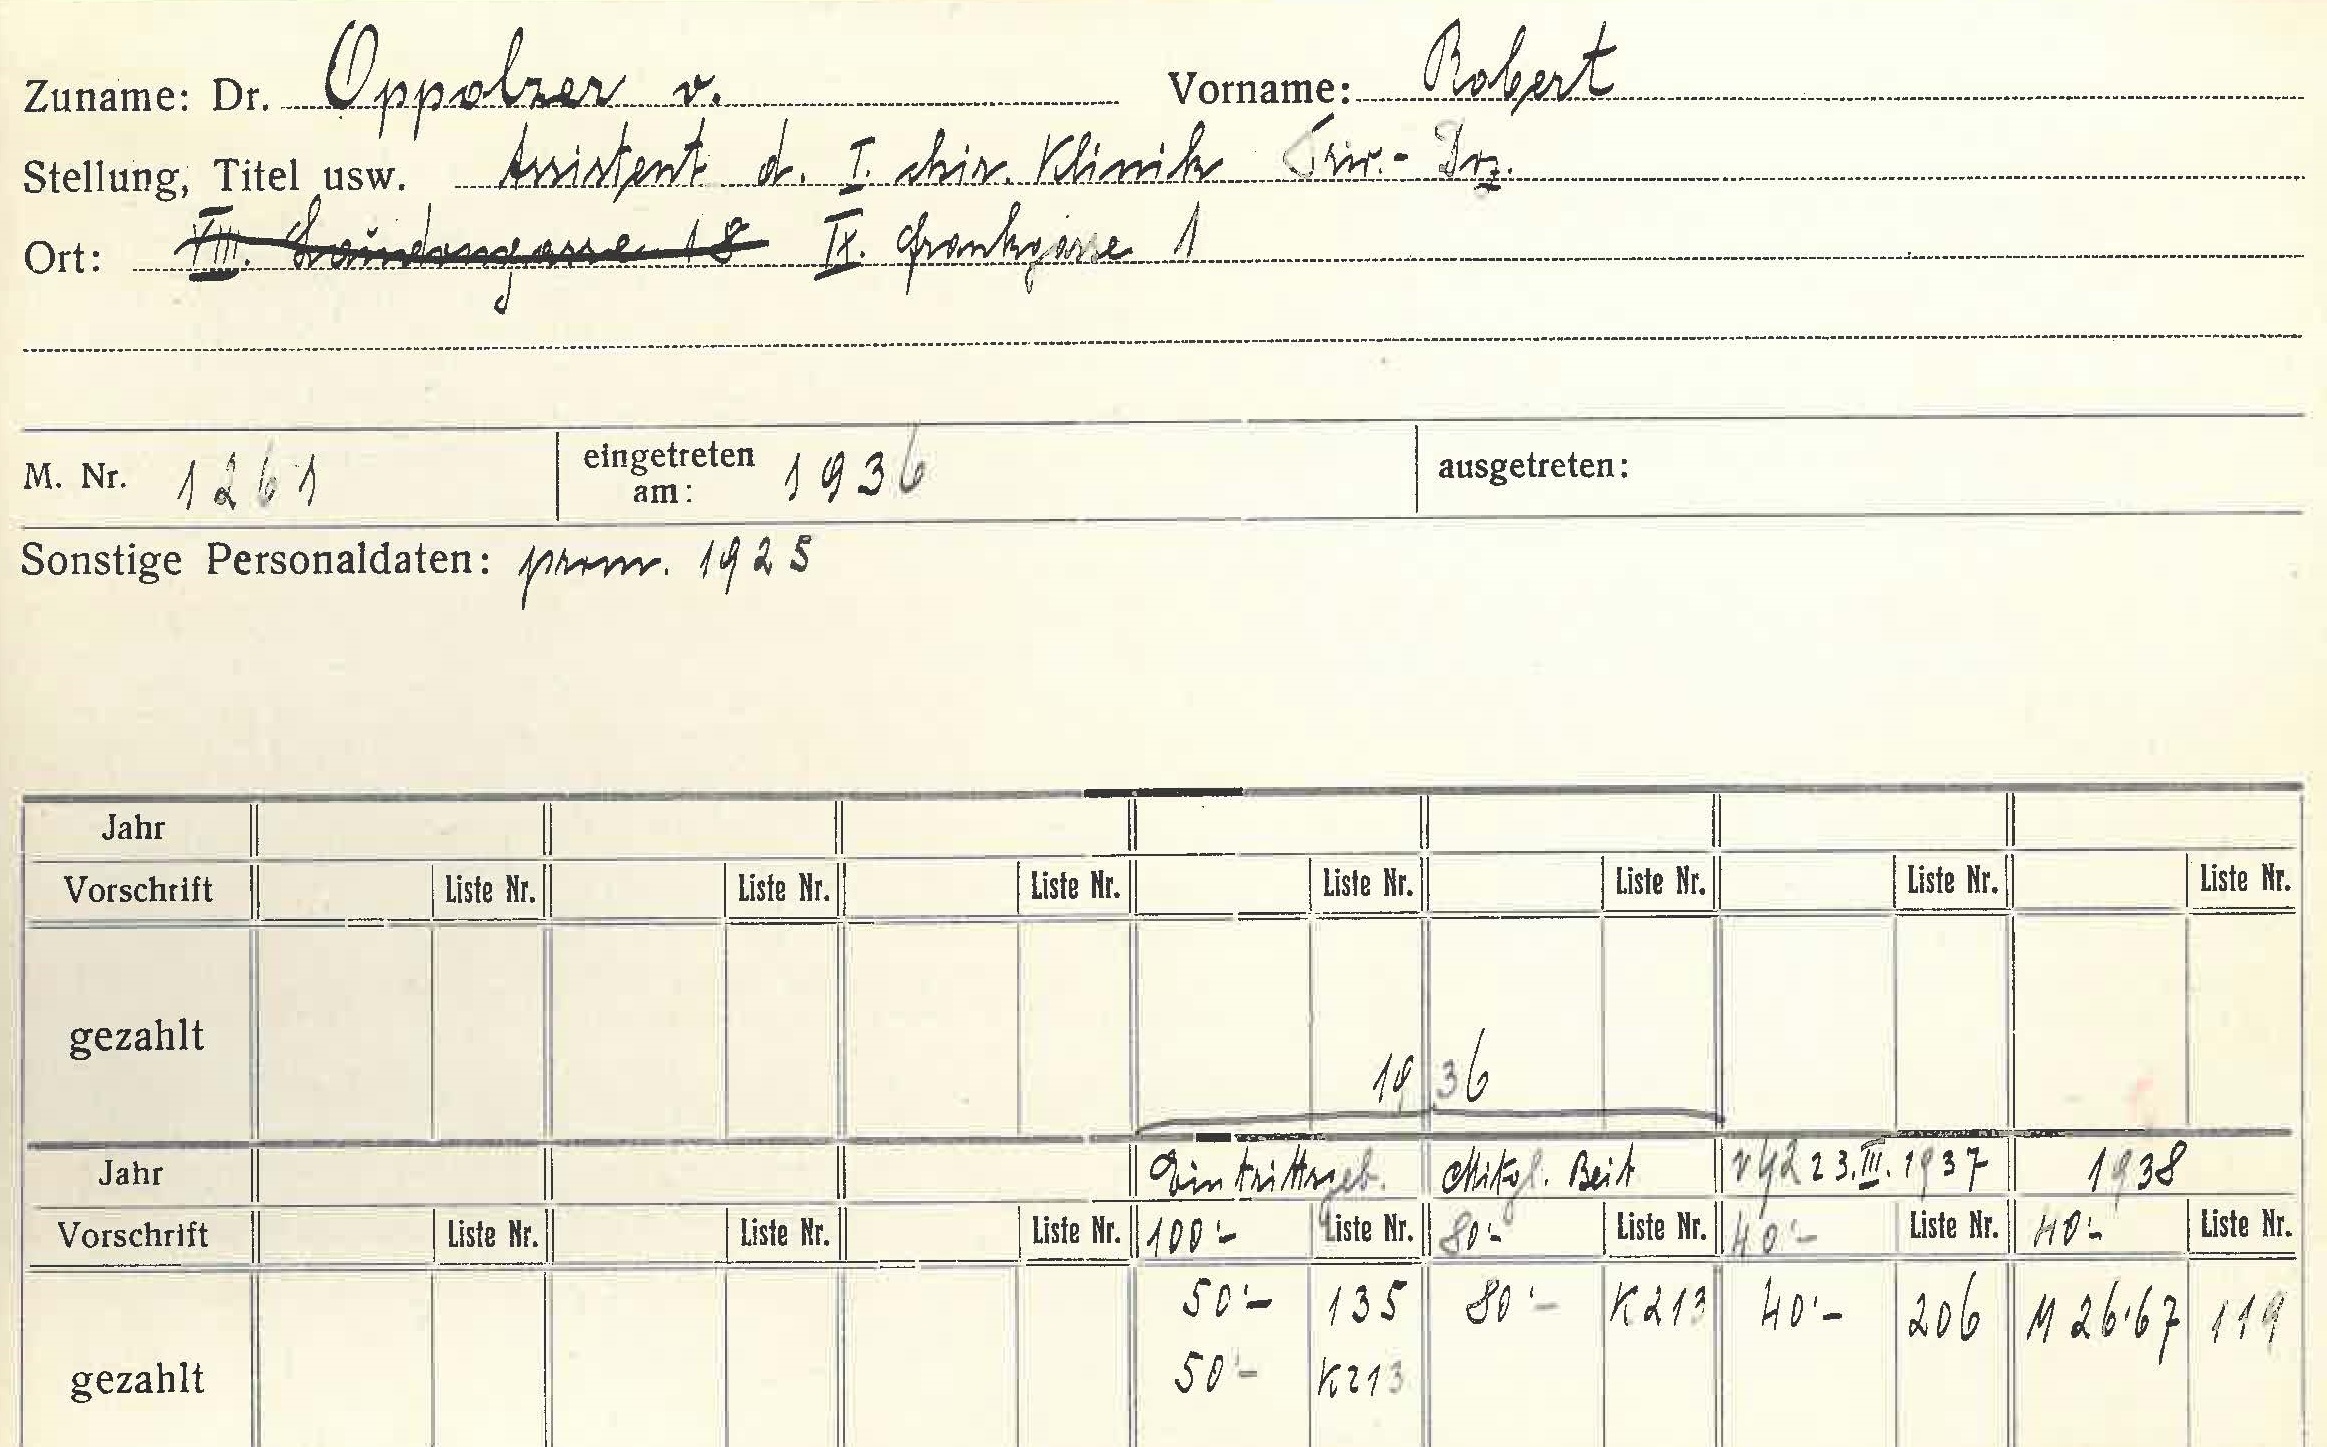 Zuname: Dr. Oppolzer v. Vorname: Robert
Stellung, Titel usw. Assistent d. I. chir. Klinik Priv.-Doz.
Ort: VIII. Laudongasse 18 IX. Frankgasse 1
M. Nr. 1261 eingetreten am: 1936 ausgetreten:
Sonstige Personaldaten: prom. 1925
Jahr
Vorschrift Liste Nr. Liste Nr. Liste Nr. Liste Nr. Liste Nr. Liste Nr. Liste Nr.
gezahlt
1936
Jahr Eintrittsgeb. Mitgl. Beit 23.III.1937 1938
Vorschrift Liste Nr. Liste Nr. Liste Nr. 100'- Liste Nr. 80'- Liste Nr. 40'- Liste Nr. 40'- Liste Nr.
50'- 135 80'- K213 40'- 206 M 26'67 119
gezahlt 50'- K213